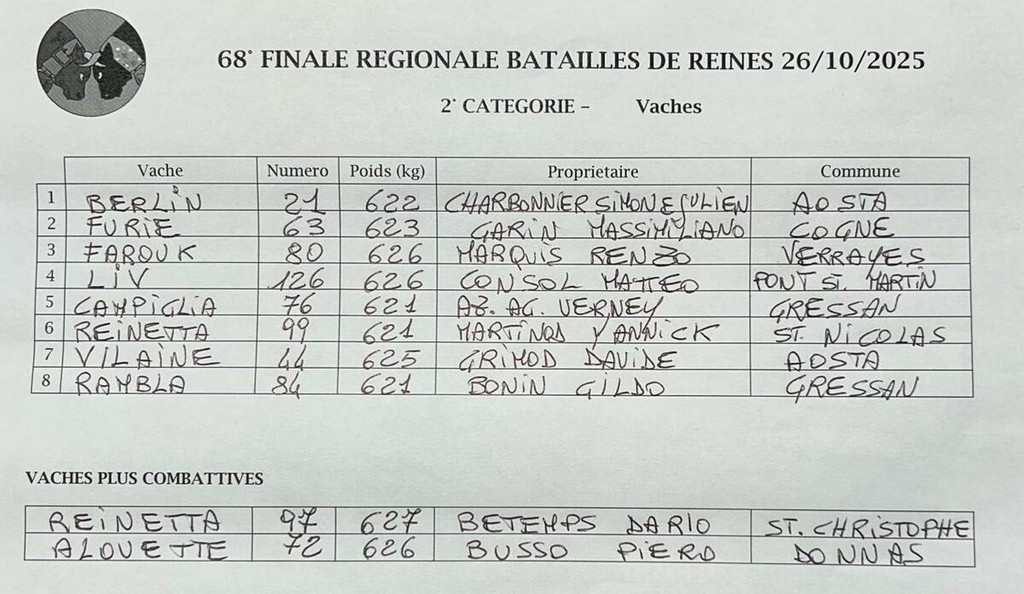 68° FINALE REGIONALE BATAILLES DE REINES 26/10/2025
2° CATEGORIE – Vaches
Vache Numero Poids (kg) Proprietaire Commune
1 BERLIN 21 622 CHARBONNIER SIMONE JULIEN AOSTA
2 FURIE 63 623 GARIN MASSIMILIANO COGNE
3 FAROUK 80 626 MARQUIS RENZO VERRAYES
4 LIV 126 626 CONSOL MATTEO PONT ST. MARTIN
5 CAMPIGLIA 76 621 AZ. AG. VERNEY GRESSAN
6 REINETTA 99 621 MARTINOD YANNICK ST. NICOLAS
7 VILAINE 44 625 GRIMOD DAVIDE AOSTA
8 RAMBLA 84 621 BONIN GILDO GRESSAN
VACHES PLUS COMBATTIVES
REINETTA 97 627 BETEMPS DARIO ST. CHRISTOPHE
ALOUETTE 72 626 BUSSO PIERO DONNAS